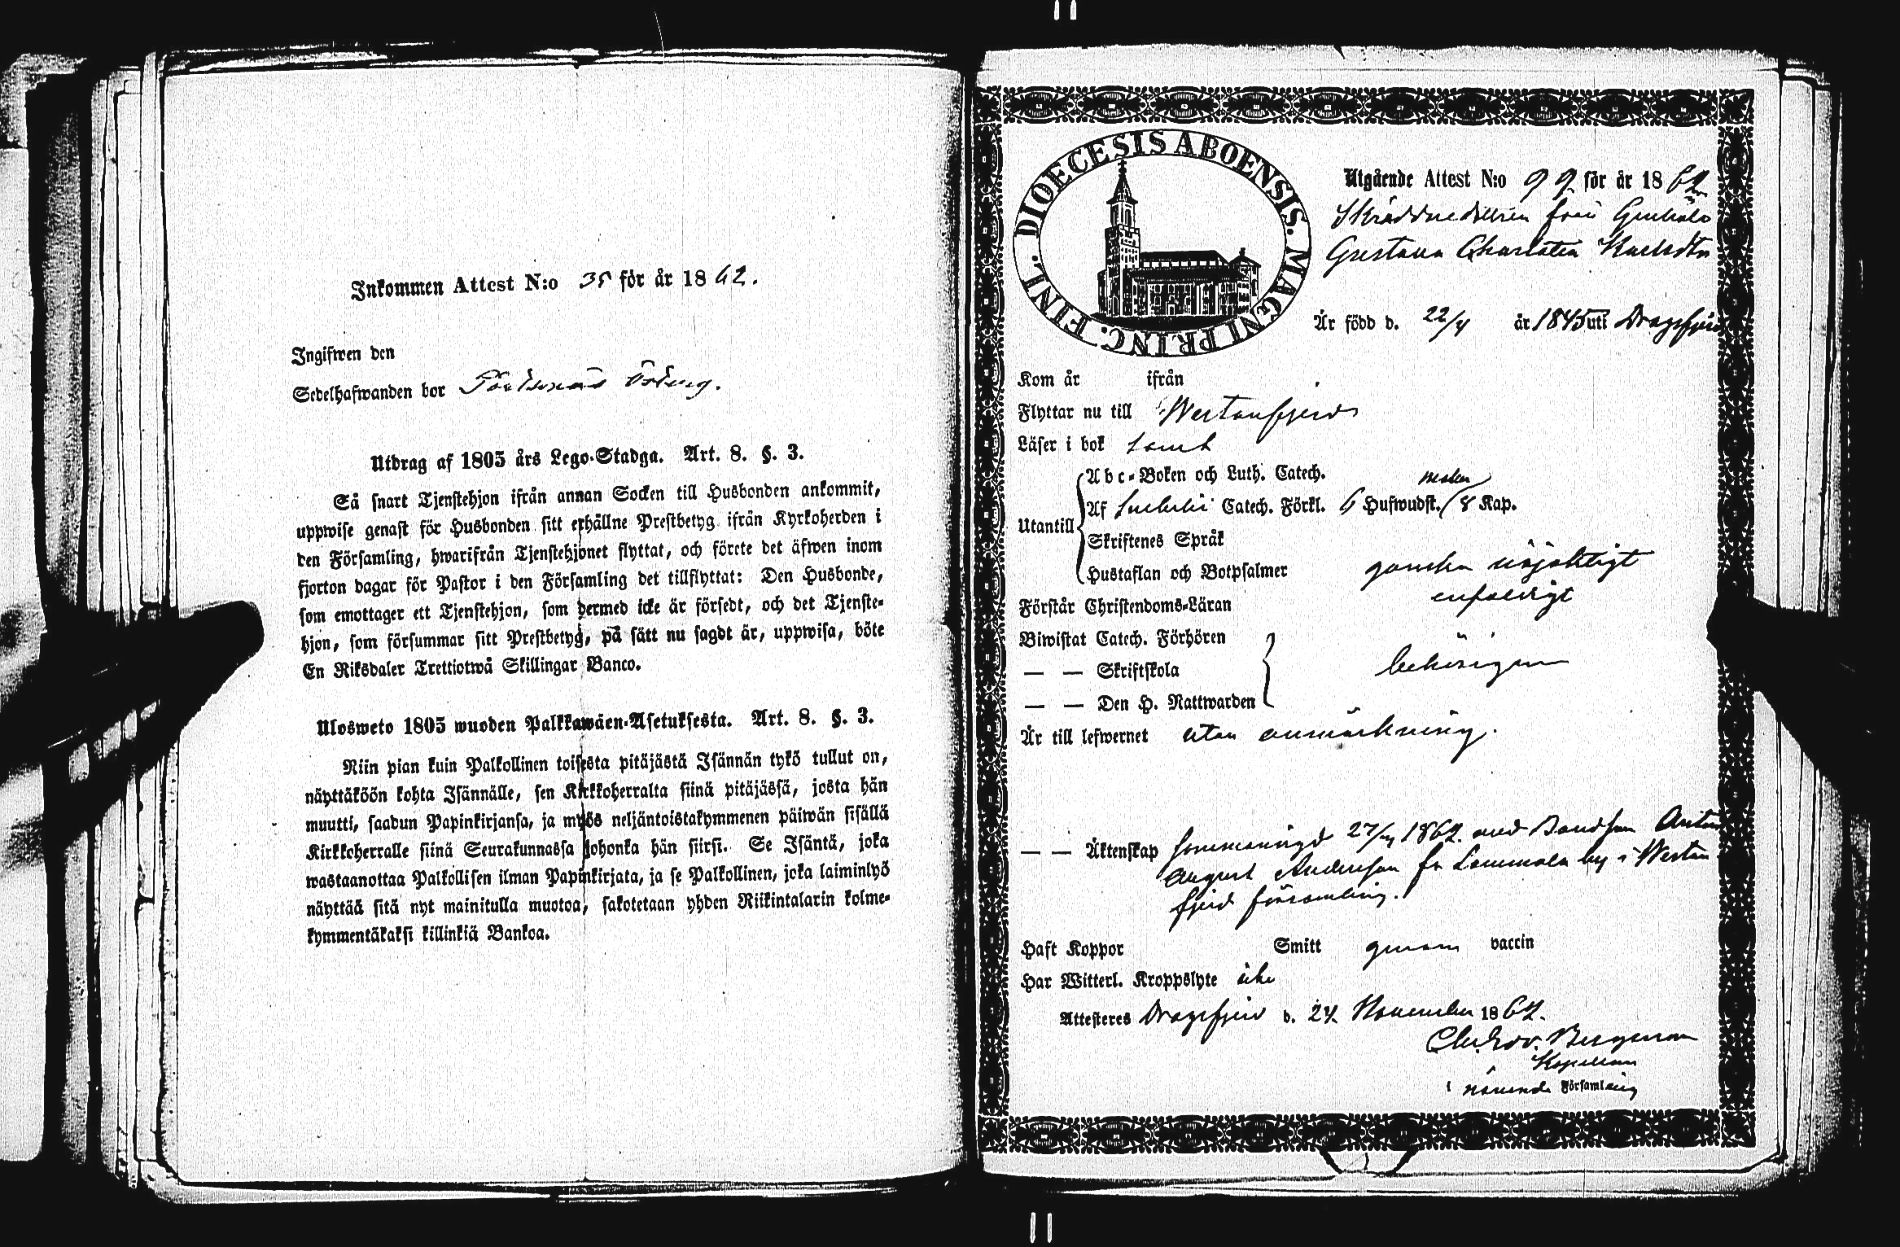 Inkommen Attest N:o 35 för år 1862.
Ingifwen den
Sedelhafwanden bor
Utdrag af 1805 års Lego-Stadga. Art. 8. §. 3.
Så snart Tjenstehjon ifrån annan Socken till Husbonden ankommit,
uppwise genast för Husbonden sitt erhållne Prestbetyg ifrån Kyrkoherden i
den Församling, hwarifrån Tjenstehjonet flyttat, och förete det äfwen inom
fjorton dagar för Pastor i den Församling det tillflyttat: Den Husbonde,
som emottager ett Tjenstehjon, som dermed icke är försedt, och det Tjenste-
hjon, som försummar sitt Prestbetyg, på sätt nu sagdt är, uppwisa, böte
En Riksdaler Trettiotwå Skillingar Banco.
Ulosweto 1805 wuoden Palkkawäen-Asetuksesta. Art. 8. §. 3.
Niin pian kuin Palkollinen toisesta pitäjästä Isännän tykö tullut on,
näyttäköön kohta Isännälle, sen Kirkkoherralta siinä pitäjässä, josta hän
muutti, saadun Papinkirjansa, ja myös neljäntoistakymmenen päiwän sisällä
Kirkkoherralle siinä Seurakunnassa johonka hän siirsi. Se Isäntä, joka
wastaanottaa Palkollisen ilman Papinkirjata, ja se Palkollinen, joka laiminlyö
näyttää sitä nyt mainitulla muotoa, sakotetaan yhden Riikintalarin kolme-
kymmentäkaksi killinkiä Bankoa.
DIOECESIS ABOENSIS. MAGNI PRINC. FINL.
Utgående Attest N:o 99 för år 1862
från
Gustava Charlotta
Är född d. 22/4 år 1845 uti Dragsfjerd
Kom år ifrån
Flyttar nu till Westanfjerd
Läser i bok samt
Abc-Boken och Luth. Catech.
nästan
Af Catech. Förkl. 6 Hufwudst. 8 Kap.
Utantill
Skriftenes Språk
Hustaflan och Botpsalmer ganska
enfaldigt
Förstår Christendoms-Läran
Biwistat Catech. Förhören
— — Skriftskola behörigen
— — Den H. Nattwarden
Är till lefwernet utan anmärkning.
— — Äktenskap 1862 med Bondson Anton
August Andersson fr. Lammala by i Westan
fjerd församling.
Haft Koppor Smitt genom vaccin
Har Witterl. Kroppslyte icke
Attesteres Dragsfjerd d. 24 November 1862.
Bergman
Kapellan
i nämnde Församling